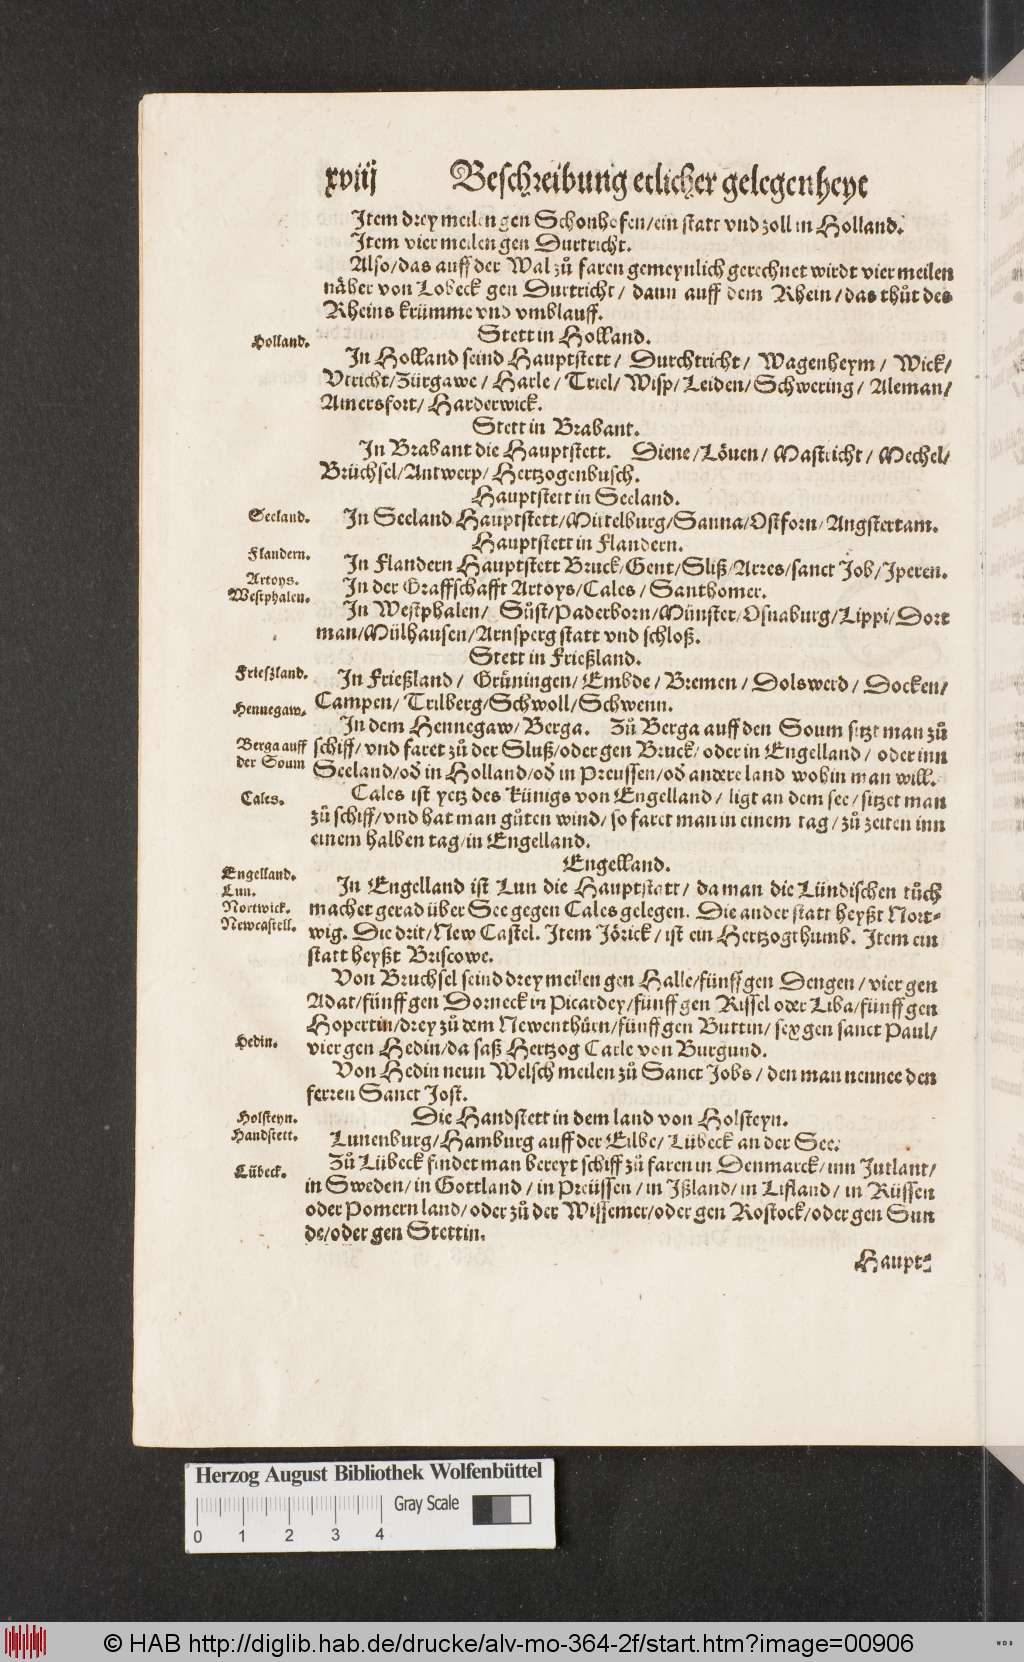 xviij Beschreibung etlicher gelegenheyt
Item drey meilen gen Schonhofen/ein statt vnd zoll in Holland.
Item vier meilen gen Durtricht.
Also/das auff der Wal zů faren gemeynlich gerechnet wirdt vier meilen
näher von Lobeck gen Durtricht/ dann auff dem Rhein/das thůt des
Rheins krümme vnd vmblauff.
Stett in Holland.
Holland.
In Holland seind Hauptstett/ Durchtricht/ Wagenheym/ Wick/
Vtricht/Zürgawe/ Harle/ Triel/ Wisp/Leiden/Schwering/ Aleman/
Amersfort/ Harderwick.
Stett in Brabant.
In Brabant die Hauptstett. Diene/Löuen/ Mastricht/ Mechel/
Brüchsel/Antwerp/ Hertzogenbusch.
Hauptstett in Seeland.
Seeland.
In Seeland Hauptstett/Mittelburg/Sanna/Ostforn/Angstertam.
Hauptstett in Flandern.
Flandern.
In Flandern Hauptstett Bruck/Gent/Sliß/Arres/sanct Job/Iperen.
Artoys.
In der Graffschafft Artoys/Cales/ Santhomer.
Westphalen.
In Westphalen/ Sůst/Paderborn/Münster/Osnaburg/Lippi/Dort
man/Mülhausen/Arnsperg statt vnd schloß.
Stett in Frießland.
Frießland.
In Frießland/ Grůningen/Embde/Bremen/ Dolswerd/ Docken/
Campen/ Trilberg/Schwoll/Schwenn.
Hennegaw.
In dem Hennegaw/ Berga. Zů Berga auff den Soum sitzt man zů
Berga auff
schiff/vnd faret zů der Sluß/oder gen Bruck/oder in Engelland/ oder inn
der Soum
Seeland/od̄ in Holland/od̄ in Preussen/od̄ andere land wohin man will.
Cales.
Cales ist yetz des Künigs von Engelland/ ligt an dem see/sitzet man
zů schiff/vnd hat man gůten wind/so faret man in einem tag/zů zeiten inn
einem halben tag/in Engelland.
Engelland.
Engelland.
In Engelland ist Lun die Hauptstatt/ da man die Lündischen tůch
Lun.
Nortwick.
machet gerad über See gegen Cales gelegen. Die ander statt heyßt Nort-
Newcastell.
wig. Die drit/New Castel. Item Jörick/ist ein Hertzogthumb. Item ein
statt heyßt Briscowe.
Von Bruchsel seind drey meilen gen Halle/fünff gen Dengen/vier gen
Adat/fünff gen Dorneck in Picardey/fünff gen Rissel oder Liba/fünff gen
Hopertin/drey zů dem Newenthůrn/fünff gen Buttin/sex gen sanct Paul/
Hedin.
vier gen Hedin/da saß Hertzog Carle von Burgund.
Von Hedin neun Welsch meilen zů Sanct Jobs/den man nennet den
ferren Sanct Jost.
Holsteyn.
Die Handstett in dem land von Holsteyn.
Handstett.
Lunenburg/Hamburg auff der Eilbe/ Lübeck an der See.
Zů Lübeck findet man bereyt schiff zů faren in Denmarck/inn Jutlant/
Lübeck.
in Sweden/in Gottland/in Preüssen/in Ißland/in Lifland/in Rüssen
oder Pomern land/oder zů der Wissemer/oder gen Rostock/oder gen Sun
de/oder gen Stettin.
Haupt-
Herzog August Bibliothek Wolfenbüttel
Gray Scale
0 1 2 3 4
© HAB http://diglib.hab.de/drucke/alv-mo-364-2f/start.htm?image=00906